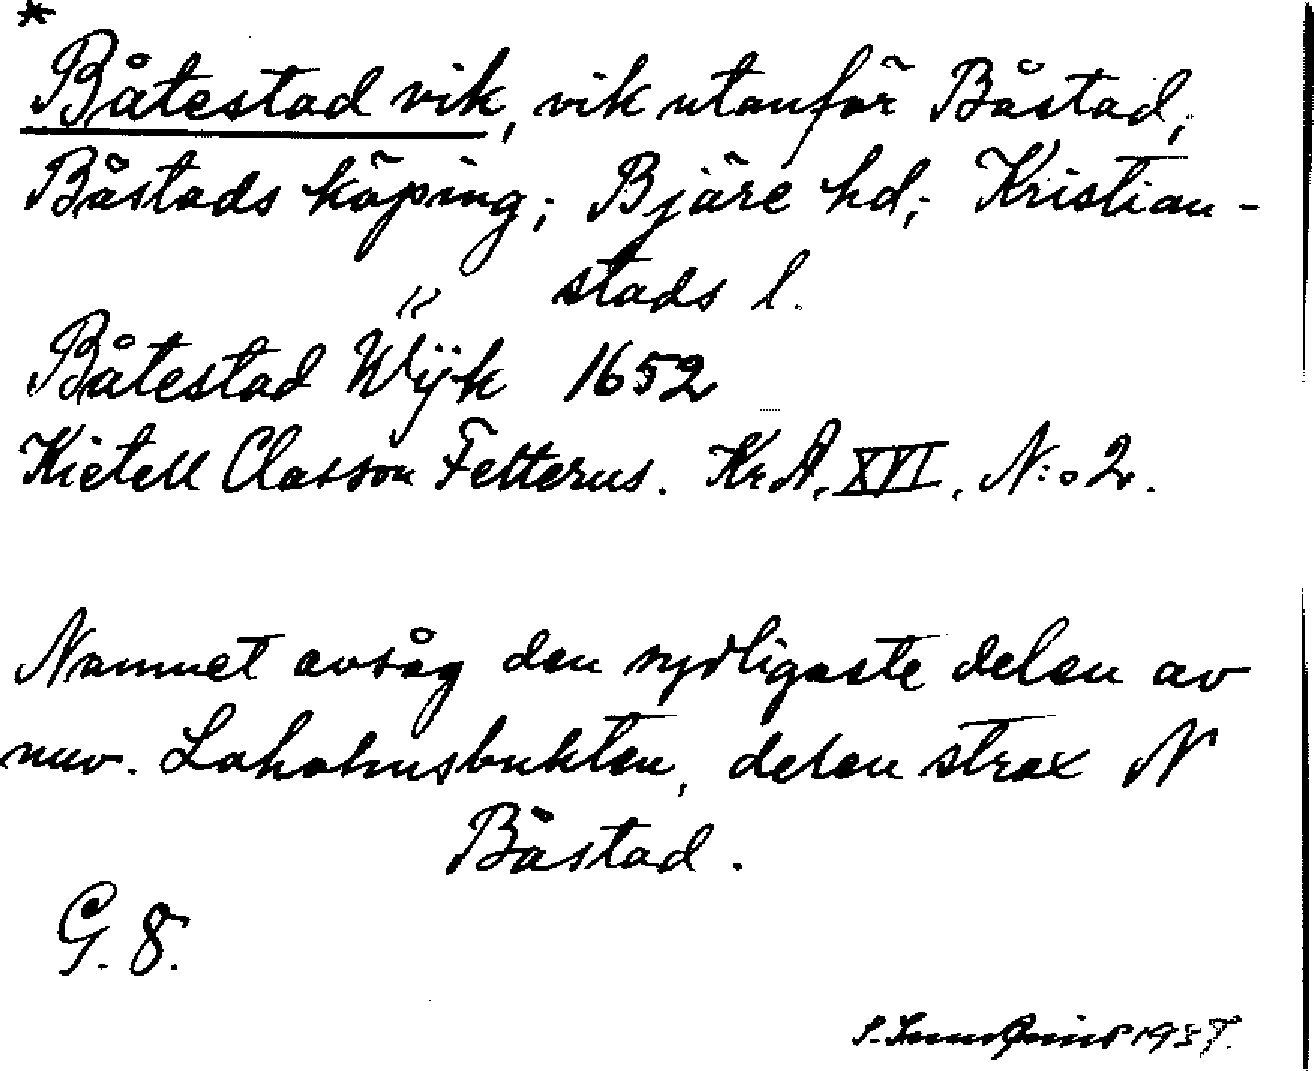 *
Båtestad vik, vik utanför Båstad,
Båstads köping; Bjäre hd; Kristian-
stads l.
Båtestad Wÿk 1652
Kietell Classon Felterus. KrA, XVI, N:o 2.
Namnet avsåg den sydligaste delen av
nuv. Laholmsbukten, delen strax N
Båstad.
G. 8.
1937.